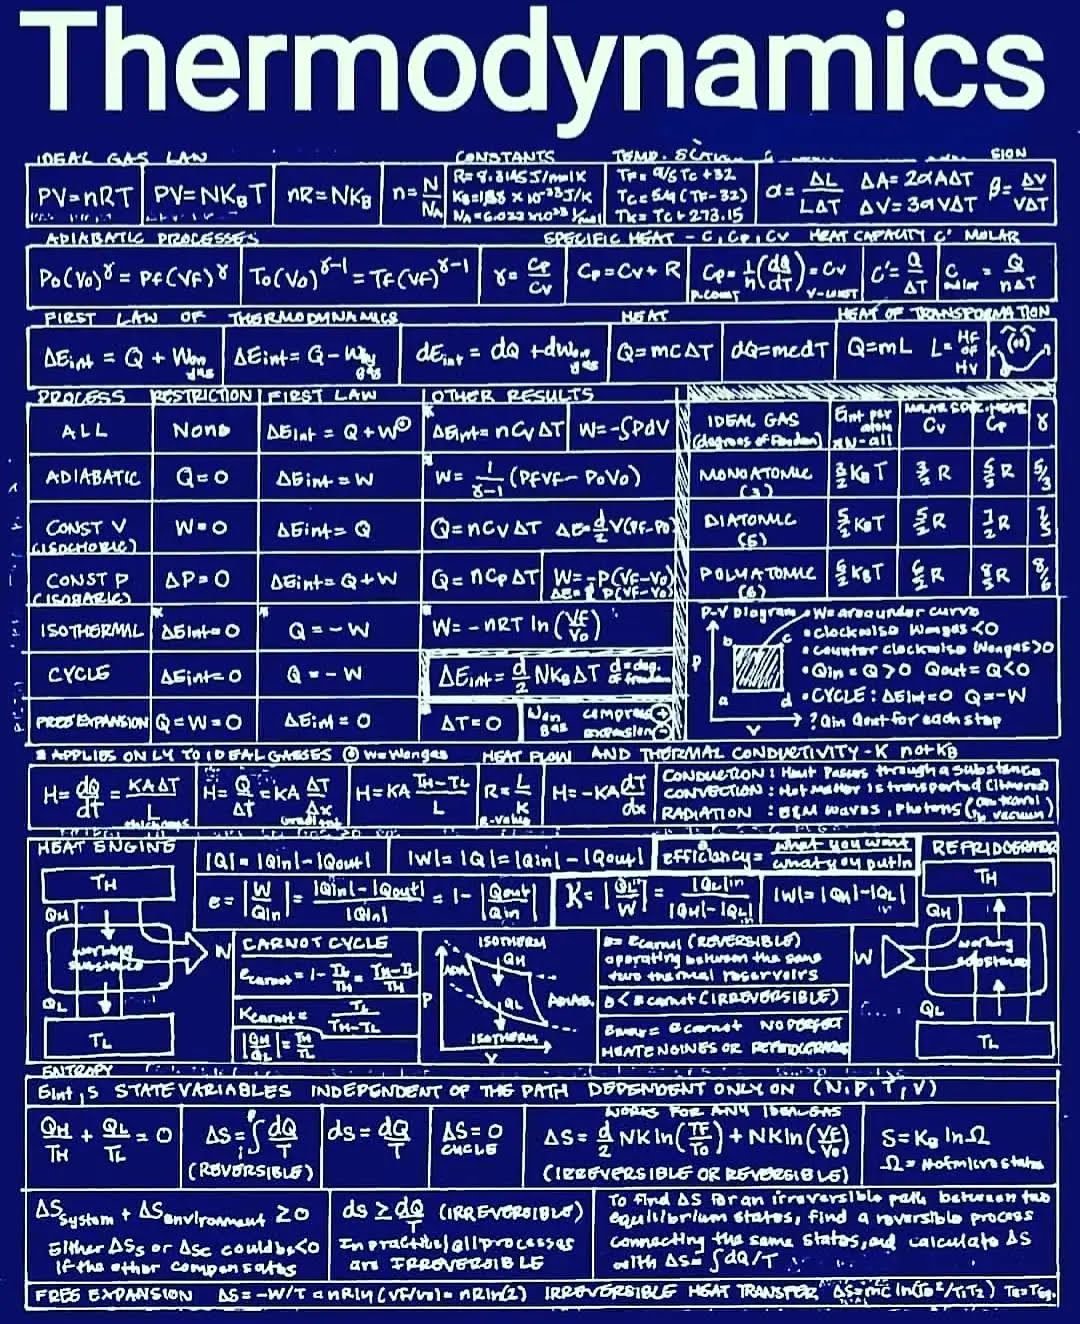 Thermodynamics
IDEAL GAS LAW
CONSTANTS
PV=nRT
PV=NK_BT
nR=NK_B
n=N/N_A
R=8.3145 J/molK
TF=9/5 TC+32
TC=5/9(TF-32)
TK=TC+273.15
α=ΔL/LΔT
ΔA=2αAΔT
ΔV=3αVΔT
β=ΔV/VΔT
ADIABATIC PROCESSES
SPECIFIC HEAT - C, CP, CV HEAT CAPACITY C' MOLAR
P0(V0)^γ = PF(VF)^γ
T0(V0)^γ-1 = TF(VF)^γ-1
γ=CP/CV
CP=CV+R
C'=Q/ΔT
C = Q/nΔT
FIRST LAW OF THERMODYNAMICS
HEAT
HEAT OF TRANSFORMATION
ΔEint = Q + Won gas
ΔEint= Q-Wby gas
dEint = dQ + dWon gas
Q=mCΔT
dQ=mcdT
Q=mL
L= HF OF HV
PROCESS RESTRICTION FIRST LAW OTHER RESULTS
ALL None ΔEint = Q+W ΔEint=nCVΔT W=-∫PdV
ADIABATIC Q=0 ΔEint=W W= 1/γ-1 (PFVF-P0V0)
CONST V (ISOCHORIC) W=0 ΔEint=Q Q=nCVΔT ΔE=d/2 V(PF-P0)
CONST P (ISOBARIC) ΔP=0 ΔEint=Q+W Q=nCPΔT W=-P(VF-V0)
ISOTHERMAL ΔEint=0 Q=-W W=-nRT ln(VF/V0)
CYCLE ΔEint=0 Q=-W ΔEint=d/2 NKBΔT d=deg. of freedom
FREE EXPANSION Q=W=0 ΔEint=0 ΔT=0 Won gas compress + expansion -
IDEAL GAS (degrees of Freedom) Eint per atom xN-all CV CP γ
MONOATOMIC (3) 3/2 KBT 3/2 R 5/2 R 5/3
DIATOMIC (5) 5/2 KBT 5/2 R 7/2 R 7/5
POLYATOMIC (6) 6/2 KBT 6/2 R 8/2 R 8/6
P-V Diagram
• W=area under curve
• clockwise Wongas<0
• counter clockwise Wongas>0
• Qin=Q>0 Qout=Q<0
• CYCLE: ΔEint=0 Q=-W
? Qin Qout for each step
P
b
c
a
d
V
* APPLIES ONLY TO IDEAL GASSES W=Wongas
HEAT FLOW AND THERMAL CONDUCTIVITY-K not KB
H=dQ/dt=KAΔT/L
H=Q/Δt=KA ΔT/Δx
H=KA TH-TL/L
R=L/K
R-value
H=-KA dT/dx
CONDUCTION: Heat Passes through a substance
CONVECTION: Hot Matter is transported
RADIATION: E&M waves, Photons (can travel in vacuum)
HEAT ENGINE
TH
QH
working substance
W
QL
TL
|Q|=|Qin|-|Qout|
|W|=|Q|=|Qin|-|Qout|
efficiancy= what you want/what you put in
e=|W/Qin|=|Qin|-|Qout|/|Qin|=1-|Qout/Qin|
K=|QL/W|=|QL|in/|QH|-|QL|in
|W|=|QH|-|QL|in
CARNOT CYCLE
ecarnot=1-TL/TH=TH-TL/TH
Kcarnot=TL/TH-TL
|QH/QL|=TH/TL
ISOTHERM
QH
ADIA.
P
QL
ADIAB.
ISOTHERM
V
e=ecarnot (REVERSIBLE)
operating between the same
two thermal reservoirs
e<ecarnot (IRREVERSIBLE)
emax=ecarnot NO PERFECT
HEAT ENGINES OR REFRIDGERATORS
REFRIDGERATOR
TH
QH
W
working substance
QL
TL
ENTROPY
Eint, S STATE VARIABLES INDEPENDENT OF THE PATH DEPENDENT ONLY ON (N,P,T,V)
QH/TH + QL/TL = 0
ΔS=∫dQ/T
(REVERSIBLE)
ds=dQ/T
ΔS=0
CYCLE
WORKS FOR ANY IDEAL GAS
ΔS= d/2 NK ln(TF/T0)+NK ln(VF/V0)
(IRREVERSIBLE OR REVERSIBLE)
S=KB lnΩ
Ω=#of microstates
ΔSsystem + ΔSenvironment ≥0
Either ΔSs or ΔSe could be<0
if the other compensates
ds≥dQ/T (IRREVERSIBLE)
In practise/all processes
are IRREVERSIBLE
To find ΔS for an irreversible path between two
equilibrium states, find a reversible process
connecting the same states, and calculate ΔS
with ΔS=∫dQ/T
FREE EXPANSION ΔS=-W/T=nRln(VF/V0)=nRln(2) IRREVERSIBLE HEAT TRANSFER